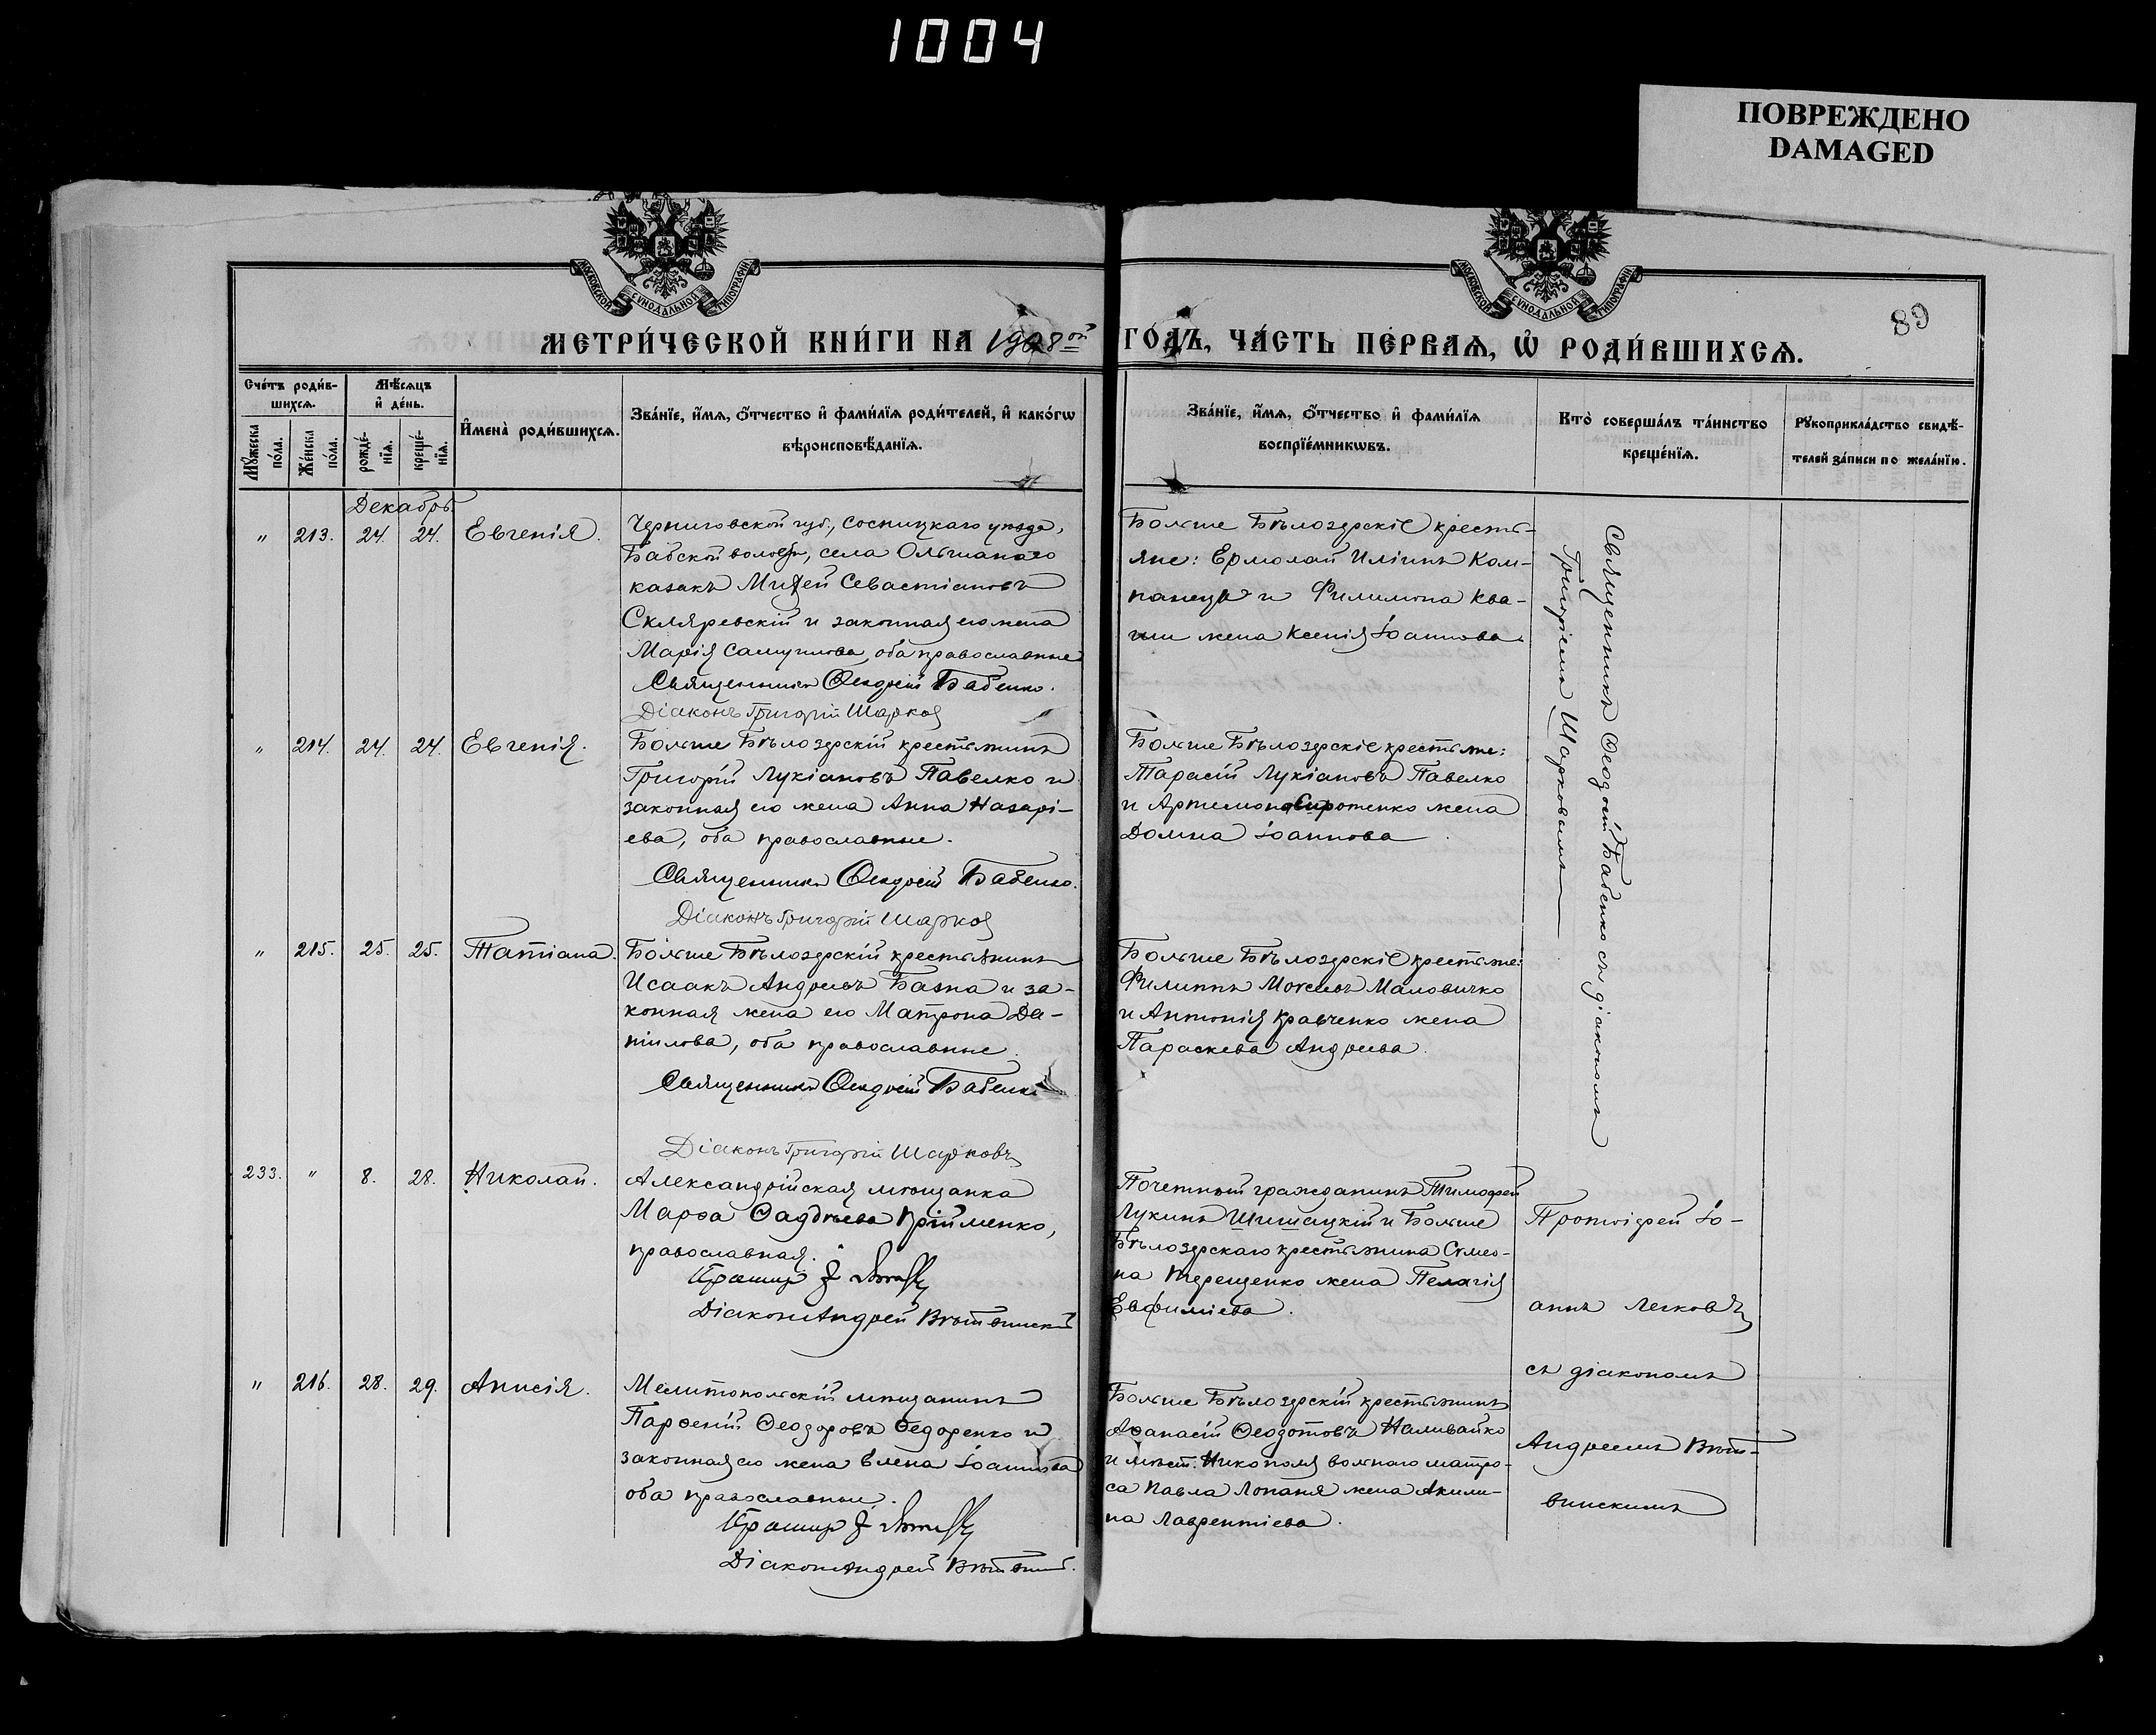 1004
ПОВРЕЖДЕНО
DAMAGED
МОСКОВСКОЙ СѴНОДАЛЬНОЙ ТИПОГРАФІИ
МОСКОВСКОЙ СѴНОДАЛЬНОЙ ТИПОГРАФІИ
89
МЕТРИ́ЧЕСКОЙ КНИ́ГИ НА 1908ой ГО́ДЪ, ЧА́СТЬ ПЕ́РВАѦ, Ѡ҆ РОДИ́ВШИХСѦ.
Сче́тъ роди́в-
шихсѧ.
Мѣ́сѧцъ
и҆ де́нь.
И҆мена̀ роди́вшихсѧ.
Зва́нїе, и҆́мѧ, ѻ҆́тчество и҆ фами́лїѧ роди́телей, и҆ како́гѡ
вѣроисповѣ́данїѧ.
Зва́нїе, и҆́мѧ, ѻ҆́тчество и҆ фами́лїѧ
воспрїе́мникѡвъ.
Кто̀ соверша́лъ та́инство
креще́нїѧ.
Рꙋкоприкла́дство свидѣ́-
телей за́писи по жела́нїю.
Мꙋ́жеска
по́ла.
Же́нска
по́ла.
рожде́-
нїѧ.
креще́-
нїѧ.
Декабрь.
" 213. 24. 24. Евгенія.
Черниговской губ., Сосницкаго уѣзда,
Бабской волости, села Ольшанаго
казакъ Михей Севастіановъ
Скляревскій и законная его жена
Марія Самуилова, оба православные
Священникъ Ѳеодосій Бабенко.
Діаконъ Григорій Шарков
Больше Бѣлозерскіе кресть-
яне: Ермолай Иліинъ Ком-
панецъ и Филимона Ква-
ши жена Ксенія Іоаннова.
Священникъ Ѳеодосій Бабенко съ діакономъ
Григоріемъ Шарковымъ
" 214. 24. 24. Евгенія.
Больше Бѣлозерскій крестьянинъ
Григорій Лукіановъ Павелко и
законная его жена Анна Назарі-
ева, оба православные.
Священникъ Ѳеодосій Бабенко.
Діаконъ Григорій Шарков
Больше Бѣлозерскіе крестьяне:
Тарасій Лукіановъ Павелко
и Артемона Сиротенко жена
Домна Іоаннова
" 215. 25. 25. Татіана.
Больше Бѣлозерскій крестьянинъ
Исаакъ Андреевъ Базна и за-
конная жена его Матрона Да-
ніилова, оба православные.
Священникъ Ѳеодосій Бабенко
Діаконъ Григорій Шарковъ
Больше Бѣлозерскіе крестьяне:
Филиппъ Моѵсеевъ Маловичко
и Антонія Кравченко жена
Параскева Андреева.
233. " 8. 28. Николай.
Александрійская мѣщанка
Марѳа Ѳаддѣева Прійменко,
православная.
Діаконъ Андрей Вѣтвинскій
Почетный гражданинъ Тимофей
Лукинъ Шишацкій и Больше
Бѣлозерскаго крестьянина Симео-
на Терещенко жена Пелагія
Евфиміева.
Протоіерей Іо-
аннъ Легковъ
съ діакономъ
Андреемъ Вѣт-
винскимъ
" 216. 28. 29. Анисія.
Мелитопольскій мѣщанинъ
Парѳеній Ѳеодоровъ Ѳедоренко и
законная его жена Елена Іоаннова
оба православные.
Діаконъ Андрей Вѣтвинскій.
Больше Бѣлозерскій крестьянинъ
Аѳанасій Ѳеодотовъ Наливайко
и мѣст. Никополя вольнаго матро-
са Павла Лопаня жена Акили-
на Лаврентіева.